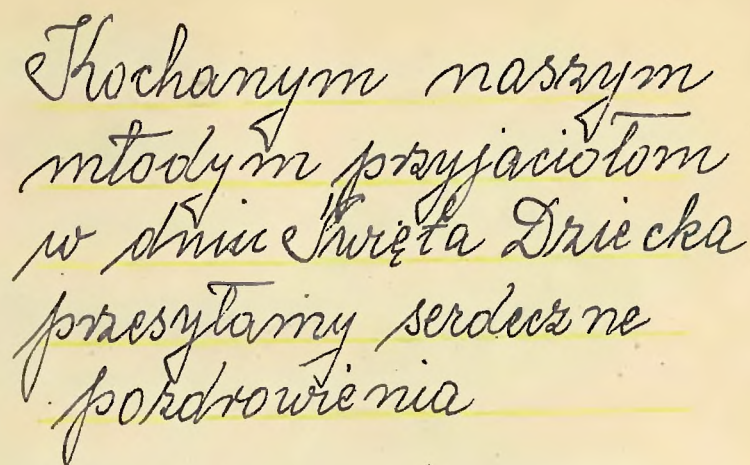 Kochanym naszym
młodym przyjaciołom
w dniu Święta Dziecka
przesyłamy serdeczne
pozdrowienia